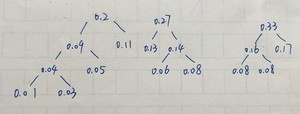 0.2 0.27 0.33
0.09 0.11 0.13 0.14 0.16 0.17
0.04 0.05 0.06 0.08 0.08 0.08
0.01 0.03